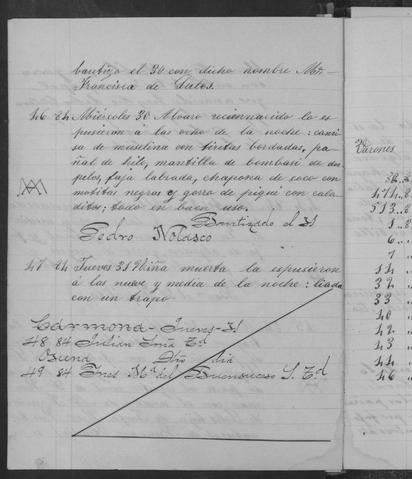 bautizo el 30 con dicho nombre Mª
Francisca de Sales.
46 84 Miércoles 30 Alvaro reciennacido lo es
pusieron á las ocho de la noche: cami
sa de muselina con tiritas bordadas, pa
ñal de hilo, mantilla de bombasi de dos
pelos, faja labrada, chapona de coco con
motitas negras y gorro de piqué con cala
ditos; todo en buen uso.
Bautizado el 31
Pedro Nolasco
47 84 Jueves 31 Niña muerta la espusieron
á las nueve y media de la noche: liada
con un trapo
Carmona - Jueves - 31
48 84 Julian
Osuna Dho dia
49 84 Ines Mª del Buensuceso
Varones
474
513
1
6
7
14
32
33
40
42
43
44
46